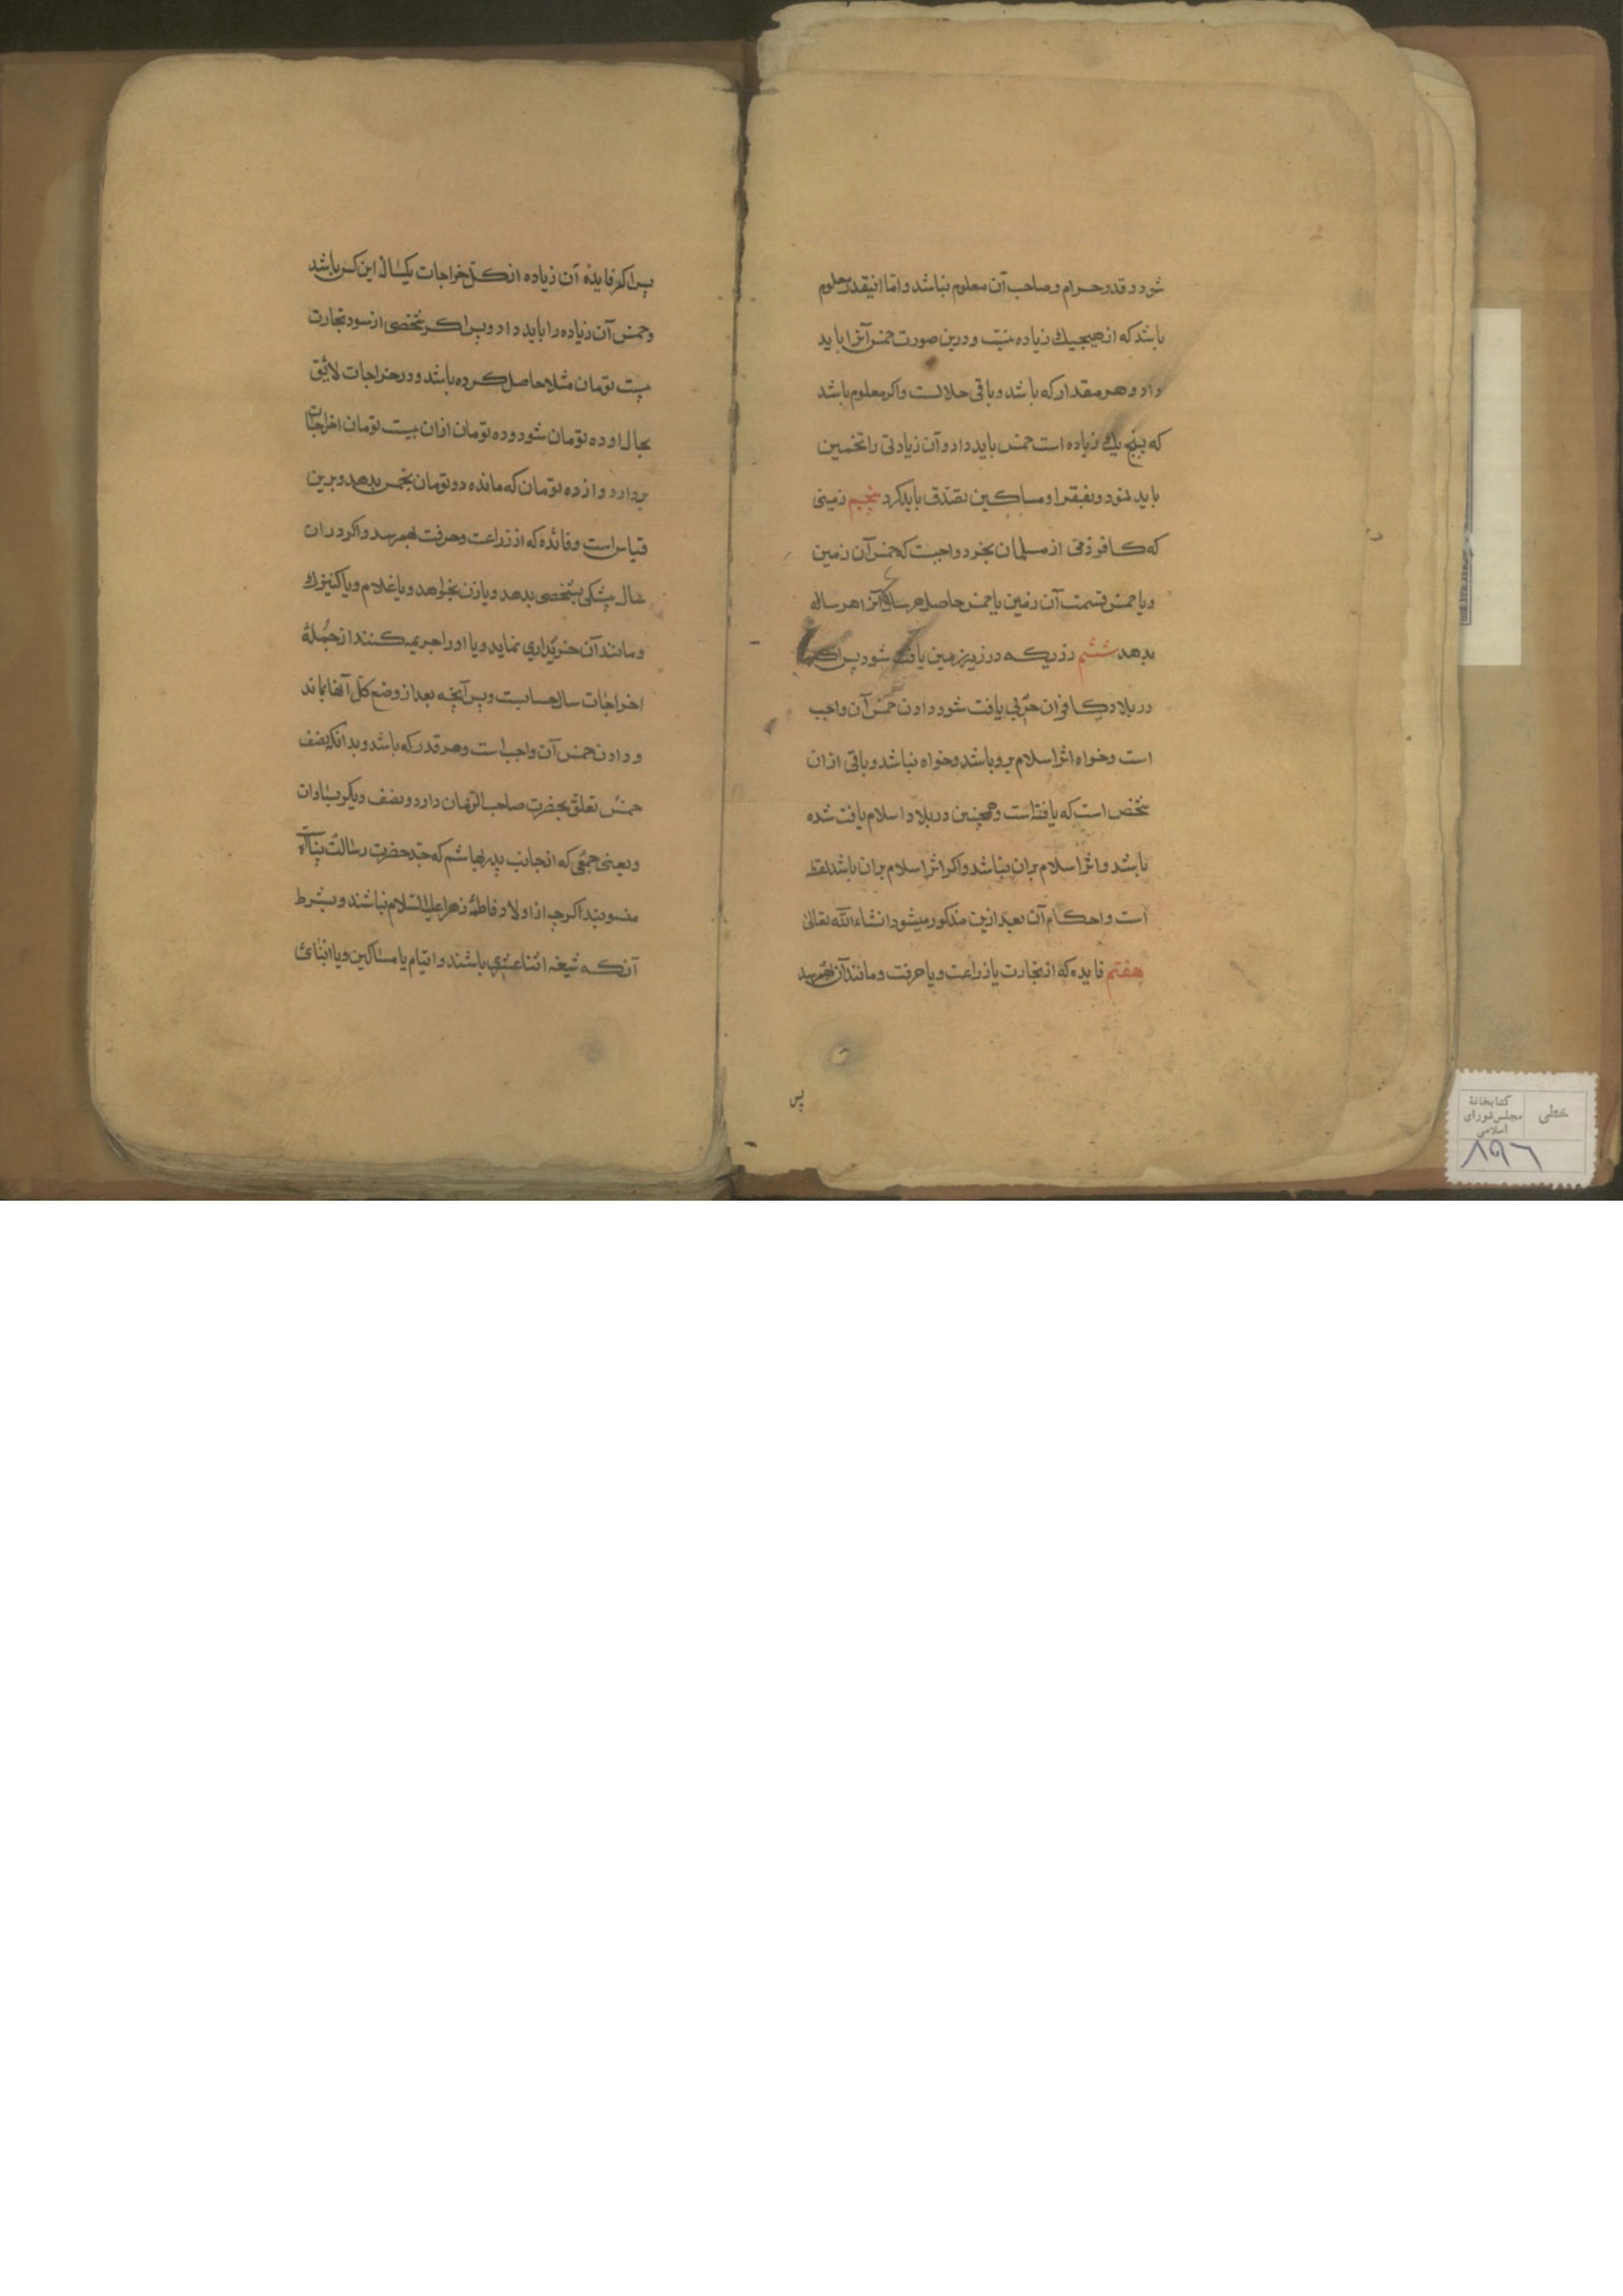 شود و قدر حرام و صاحب آن معلوم نباشد و اما اینقدر معلوم
باشد که از هیچیك زیاده نیست و درین صورت خمس آنرا باید
داد و هر مقدار که باشد و باقی حلالست و اکر معلوم باشد
که پنج یك زیاده است خمس باید داد و آن زیادتی را تخمین
باید نمود و بفقرا و مساکین تصدّق باید کرد پنجم زمینی
که کافر ذمی از مسلمان بخرد واجبست که خمس آن زمین
و یا خمس قیمت آن زمین یا خمس حاصل هر ساله آنرا هر ساله
بدهد ششم زریکه در زیر زمین یافت شود پس اکر
در بلاد کافران حربی یافت شود دادن خمس آن واجب
است و خواه اثر اسلام برو باشد و خواه نباشد و باقی ازان
شخص است که یافته است و همچنین در بلاد اسلام یافت شده
باشد و اثر اسلام بران نباشد و اکر اثر اسلام بران باشد لقطه
است و احکام آن بعد ازین مذکور میشود انشاء الله تعالی
هفتم فایده که از تجارت یا زراعت و یا حرفت و مانند آن بهمرسد
پس
پس اکر فایده آن زیاده از کل خراجات یکساله این کس باشد
و خمس آن زیاده را باید داد و پس اکر شخصی از سود تجارت
بیست تومان مثلا حاصل کرده باشد و در خراجات لائق
بحال او ده تومان شود و ده تومان ازان بیست تومان اخراجات
بردارد و از ده تومان که مانده دو تومان بخمس بدهد و برین
قیاس است و فائده که از زراعت و حرفت بهمرسد و اکر دران
سال پیشکی بشخصی بدهد و یا زن بخواهد و یا غلام و یا کنیزك
و مانند آن خریداری نماید و یا او را جریمه کنند از جمله
اخراجات سال حسابست و پس آنچه بعد از وضع کل آنها بماند
و دادن خمس آن واجب است و هر قدر که باشد و بدانکه نصف
خمس تعلق بحضرت صاحب الزمان دارد و نصف دیکر بسادات
و یعنی جمعی که از جانب پدر بهاشم که جد حضرت رسالت پناه
منسوبند اکرچه از اولاد فاطمهٔ زهرا علیها السلام نباشند و بشرط
آنکه شیعه اثنا عشری باشند و ایتام یا مساکین و یا ابنائ
خطی
کتابخانهٔ
مجلس شورای
اسلامی
۸۹۶